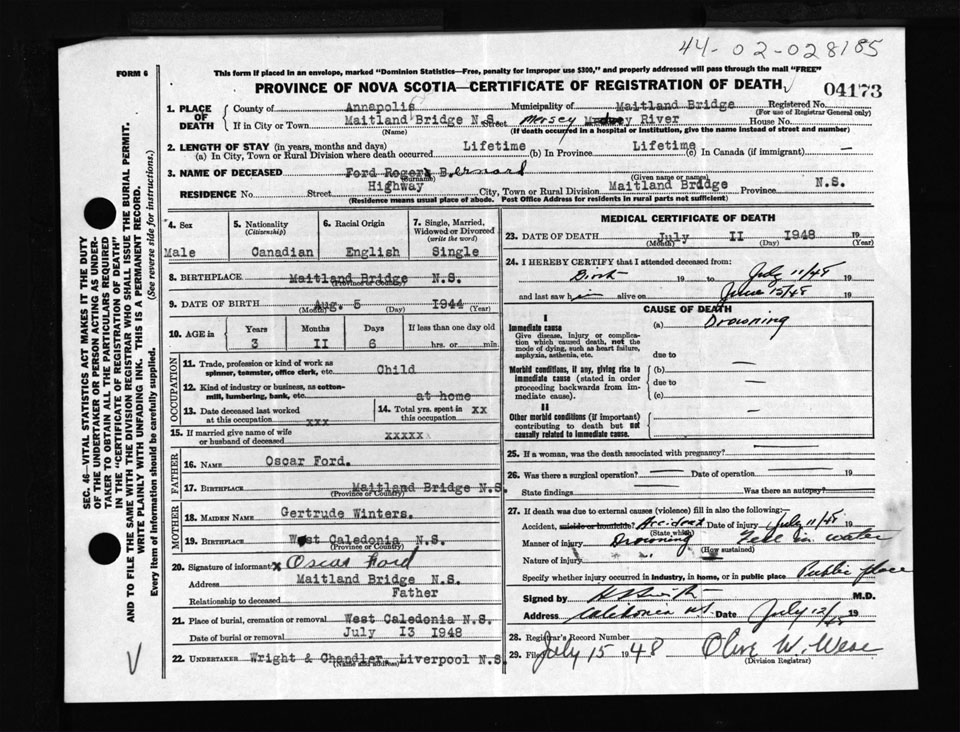 44-02-028185
FORM 6
This form if placed in an envelope, marked "Dominion Statistics—Free, penalty for improper use $300," and properly addressed will pass through the mail "FREE"
PROVINCE OF NOVA SCOTIA—CERTIFICATE OF REGISTRATION OF DEATH
04173
1. PLACE OF DEATH
County of Annapolis Municipality of Maitland Bridge Registered No.
(For use of Registrar General only)
If in City or Town Maitland Bridge N.S. Street Mersey River House No.
(Name) (If death occurred in a hospital or institution, give the name instead of street and number)
2. LENGTH OF STAY (in years, months and days)
(a) In City, Town or Rural Division where death occurred Lifetime (b) In Province Lifetime (c) In Canada (if immigrant) —
3. NAME OF DECEASED Ford Roger Bernard
(Surname) (Given name or names)
RESIDENCE No. Street Highway City, Town or Rural Division Maitland Bridge Province N.S.
(Residence means usual place of abode. Post Office Address for residents in rural parts not sufficient)
4. Sex Male
5. Nationality (Citizenship) Canadian
6. Racial Origin English
7. Single, Married, Widowed or Divorced (write the word) Single
8. BIRTHPLACE Maitland Bridge N.S.
(Province or Country)
9. DATE OF BIRTH Aug. 5 1944
(Month) (Day) (Year)
10. AGE in Years Months Days If less than one day old
3 II 6 hrs. or min.
OCCUPATION
11. Trade, profession or kind of work as spinner, teamster, office clerk, etc. Child
12. Kind of industry or business, as cotton-mill, lumbering, bank, etc. at home
13. Date deceased last worked at this occupation xxx
14. Total yrs. spent in this occupation xx
15. If married give name of wife or husband of deceased xxxxx
FATHER
16. NAME Oscar Ford.
17. BIRTHPLACE Maitland Bridge N.S.
(Province or Country)
MOTHER
18. MAIDEN NAME Gertrude Winters.
19. BIRTHPLACE West Caledonia N.S.
(Province or Country)
20. Signature of informant x Oscar Ford
Address Maitland Bridge N.S.
Relationship to deceased Father
21. Place of burial, cremation or removal West Caledonia N.S.
Date of burial or removal July I3 1948
22. UNDERTAKER Wright & Chandler Liverpool N.S.
(Name and address)
MEDICAL CERTIFICATE OF DEATH
23. DATE OF DEATH July II 1948 19
(Month) (Day) (Year)
24. I HEREBY CERTIFY that I attended deceased from:
19 to July 11/48 19
and last saw him alive on June 13/48 19
CAUSE OF DEATH
I
Immediate cause
Give disease, injury or complication which caused death, not the mode of dying, such as heart failure, asphyxia, asthenia, etc.
(a) Drowning
due to
Morbid conditions, if any, giving rise to immediate cause (stated in order proceeding backwards from immediate cause).
(b) —
due to —
(c)
II
Other morbid conditions (if important) contributing to death but not causally related to immediate cause.
—
25. If a woman, was the death associated with pregnancy?
26. Was there a surgical operation? — Date of operation — 19
State findings — Was there an autopsy?
27. If death was due to external causes (violence) fill in also the following:—
Accident, suicide or homicide? Accident Date of injury July 11/48 19
(State which)
Manner of injury Drowning Fell in water
(How sustained)
Nature of injury " "
Specify whether injury occurred in industry, in home, or in public place Public place
Signed by M.D.
Address Caledonia N.S. Date July 12/48 19
28. Registrar's Record Number
29. Filed July 15 1948 Olive W. 
(Division Registrar)
SEC. 46—VITAL STATISTICS ACT MAKES IT THE DUTY
OF THE UNDERTAKER OR PERSON ACTING AS UNDER-
TAKER TO OBTAIN ALL THE PARTICULARS REQUIRED
IN THE "CERTIFICATE OF REGISTRATION OF DEATH"
AND TO FILE THE SAME WITH THE DIVISION REGISTRAR WHO SHALL ISSUE THE BURIAL PERMIT.
WRITE PLAINLY WITH UNFADING INK. THIS IS A PERMANENT RECORD.
Every item of information should be carefully supplied. (See reverse side for instructions.)